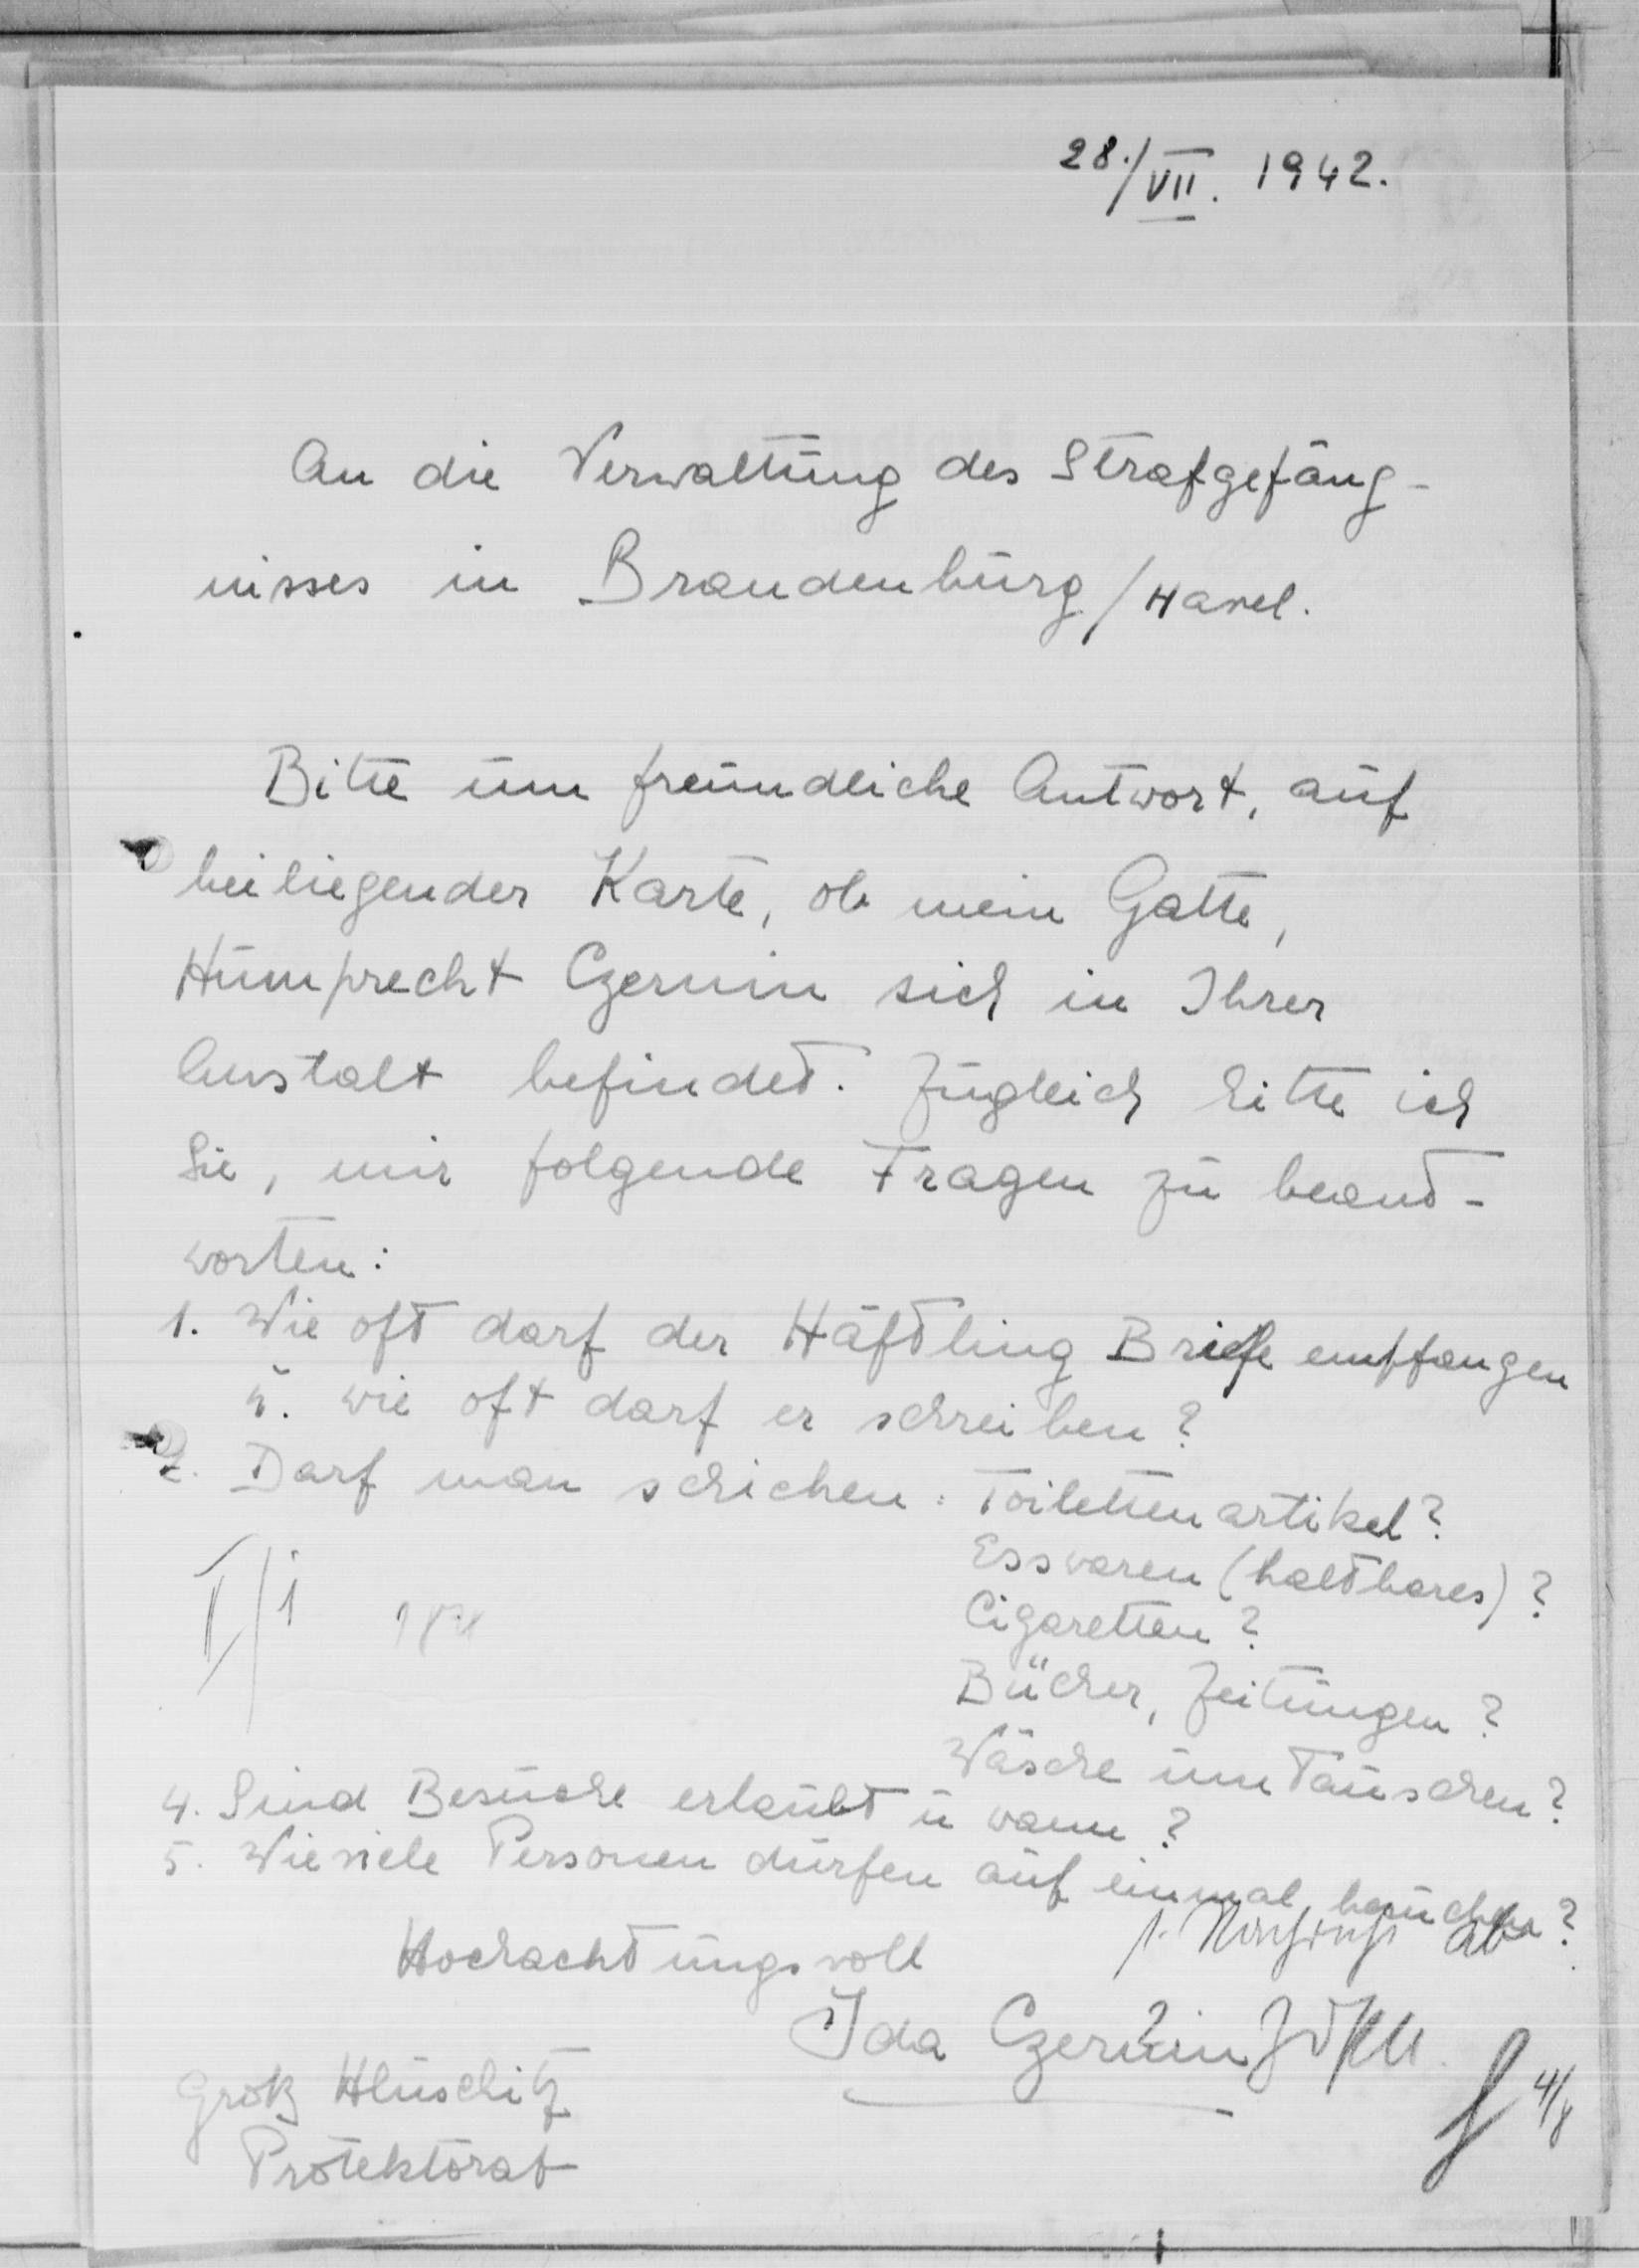 28./VII. 1942.
An die Verwaltung des Strafgefäng-
nisses in Brandenburg/Havel.
Bitte um freundliche Antwort, auf
beiliegender Karte, ob mein Gatte,
Humprecht Czernin sich in Ihrer
Anstalt befindet. Zugleich bitte ich
Sie, mir folgende Fragen zu beant-
worten:
1. Wie oft darf der Häftling Briefe empfangen
u. wie oft darf er schreiben?
2. Darf man schicken: Toilettenartikel?
Esswaren (haltbares)?
Cigaretten?
Bücher, Zeitungen?
Wäsche um Tauschen?
4. Sind Besuche erlaubt u wann?
5. Wieviele Personen dürfen auf einmal besuchen?
Hochachtungsvoll
Ida Czernin
Groß Hluschitz
Protektorat
4/8